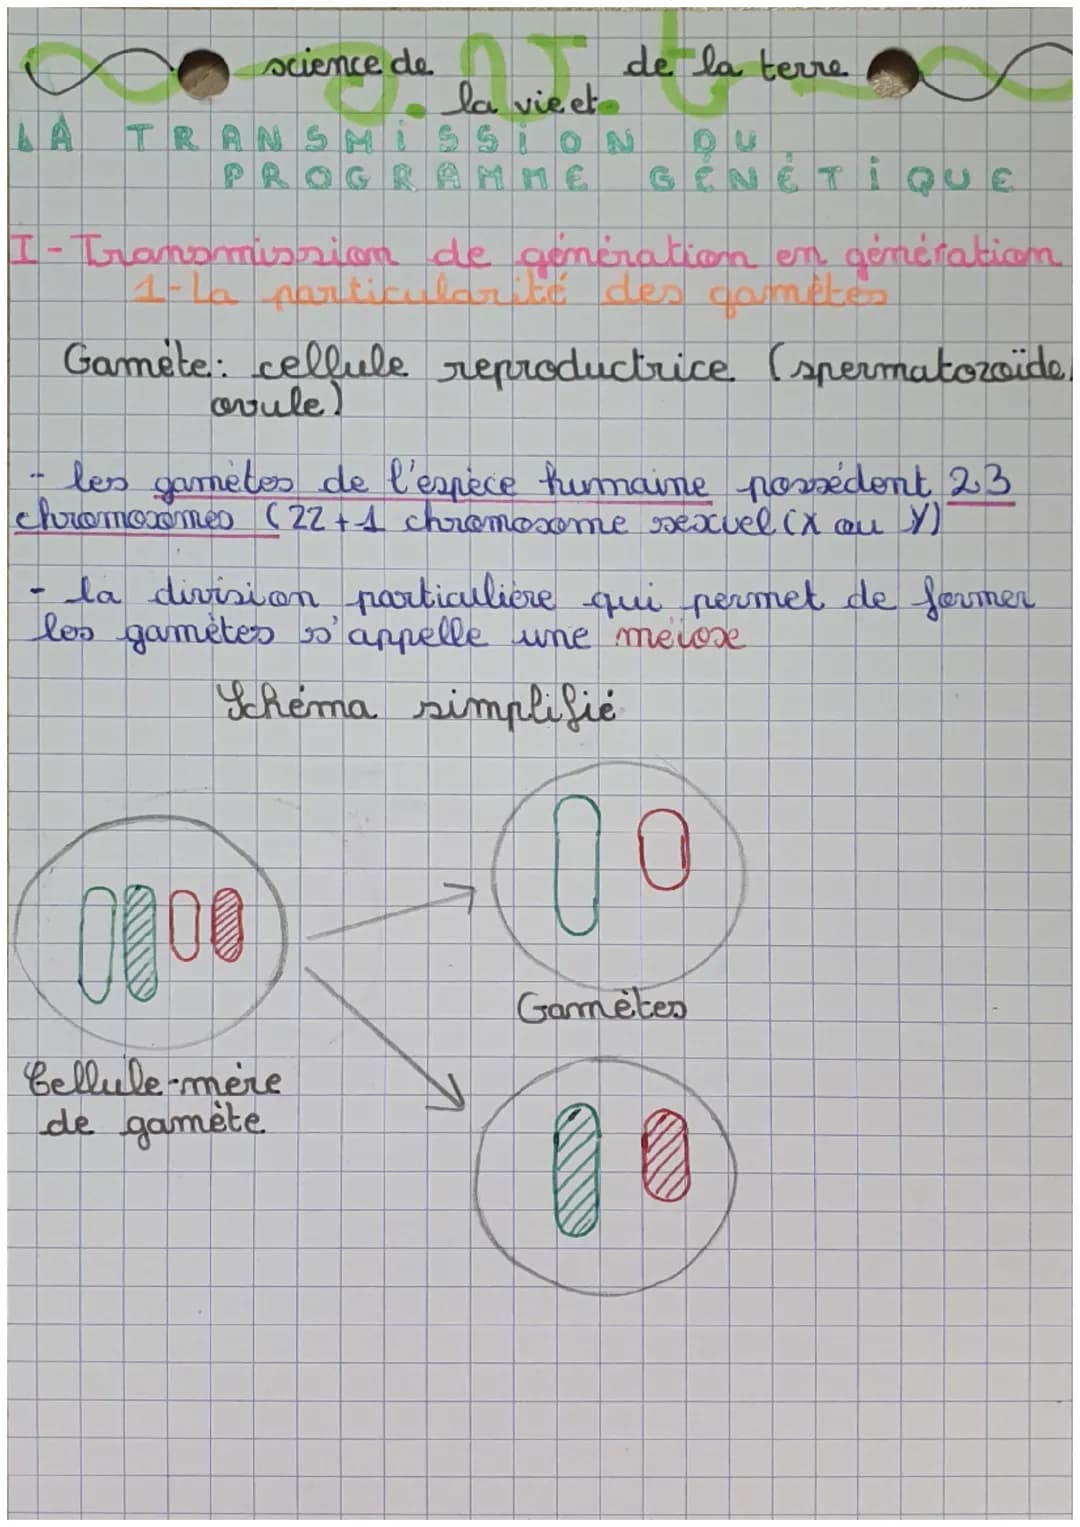 science de
S.V.t
de la terre
la vie et
LA TRANSMISSION DU
PROGRAMME GÉNÉTIQUE
I - Transmission de génération en génération
1 - La particularité des gamètes
Gamète : cellule reproductrice (spermatozoïde,
ovule)
- les gamètes de l'espèce humaine possèdent 23
chromosomes (22 + 1 chromosome sexuel (X ou Y)
- la division particulière qui permet de former
les gamètes s'appelle une meiose
Schéma simplifié
Gamètes
Cellule-mère
de gamète